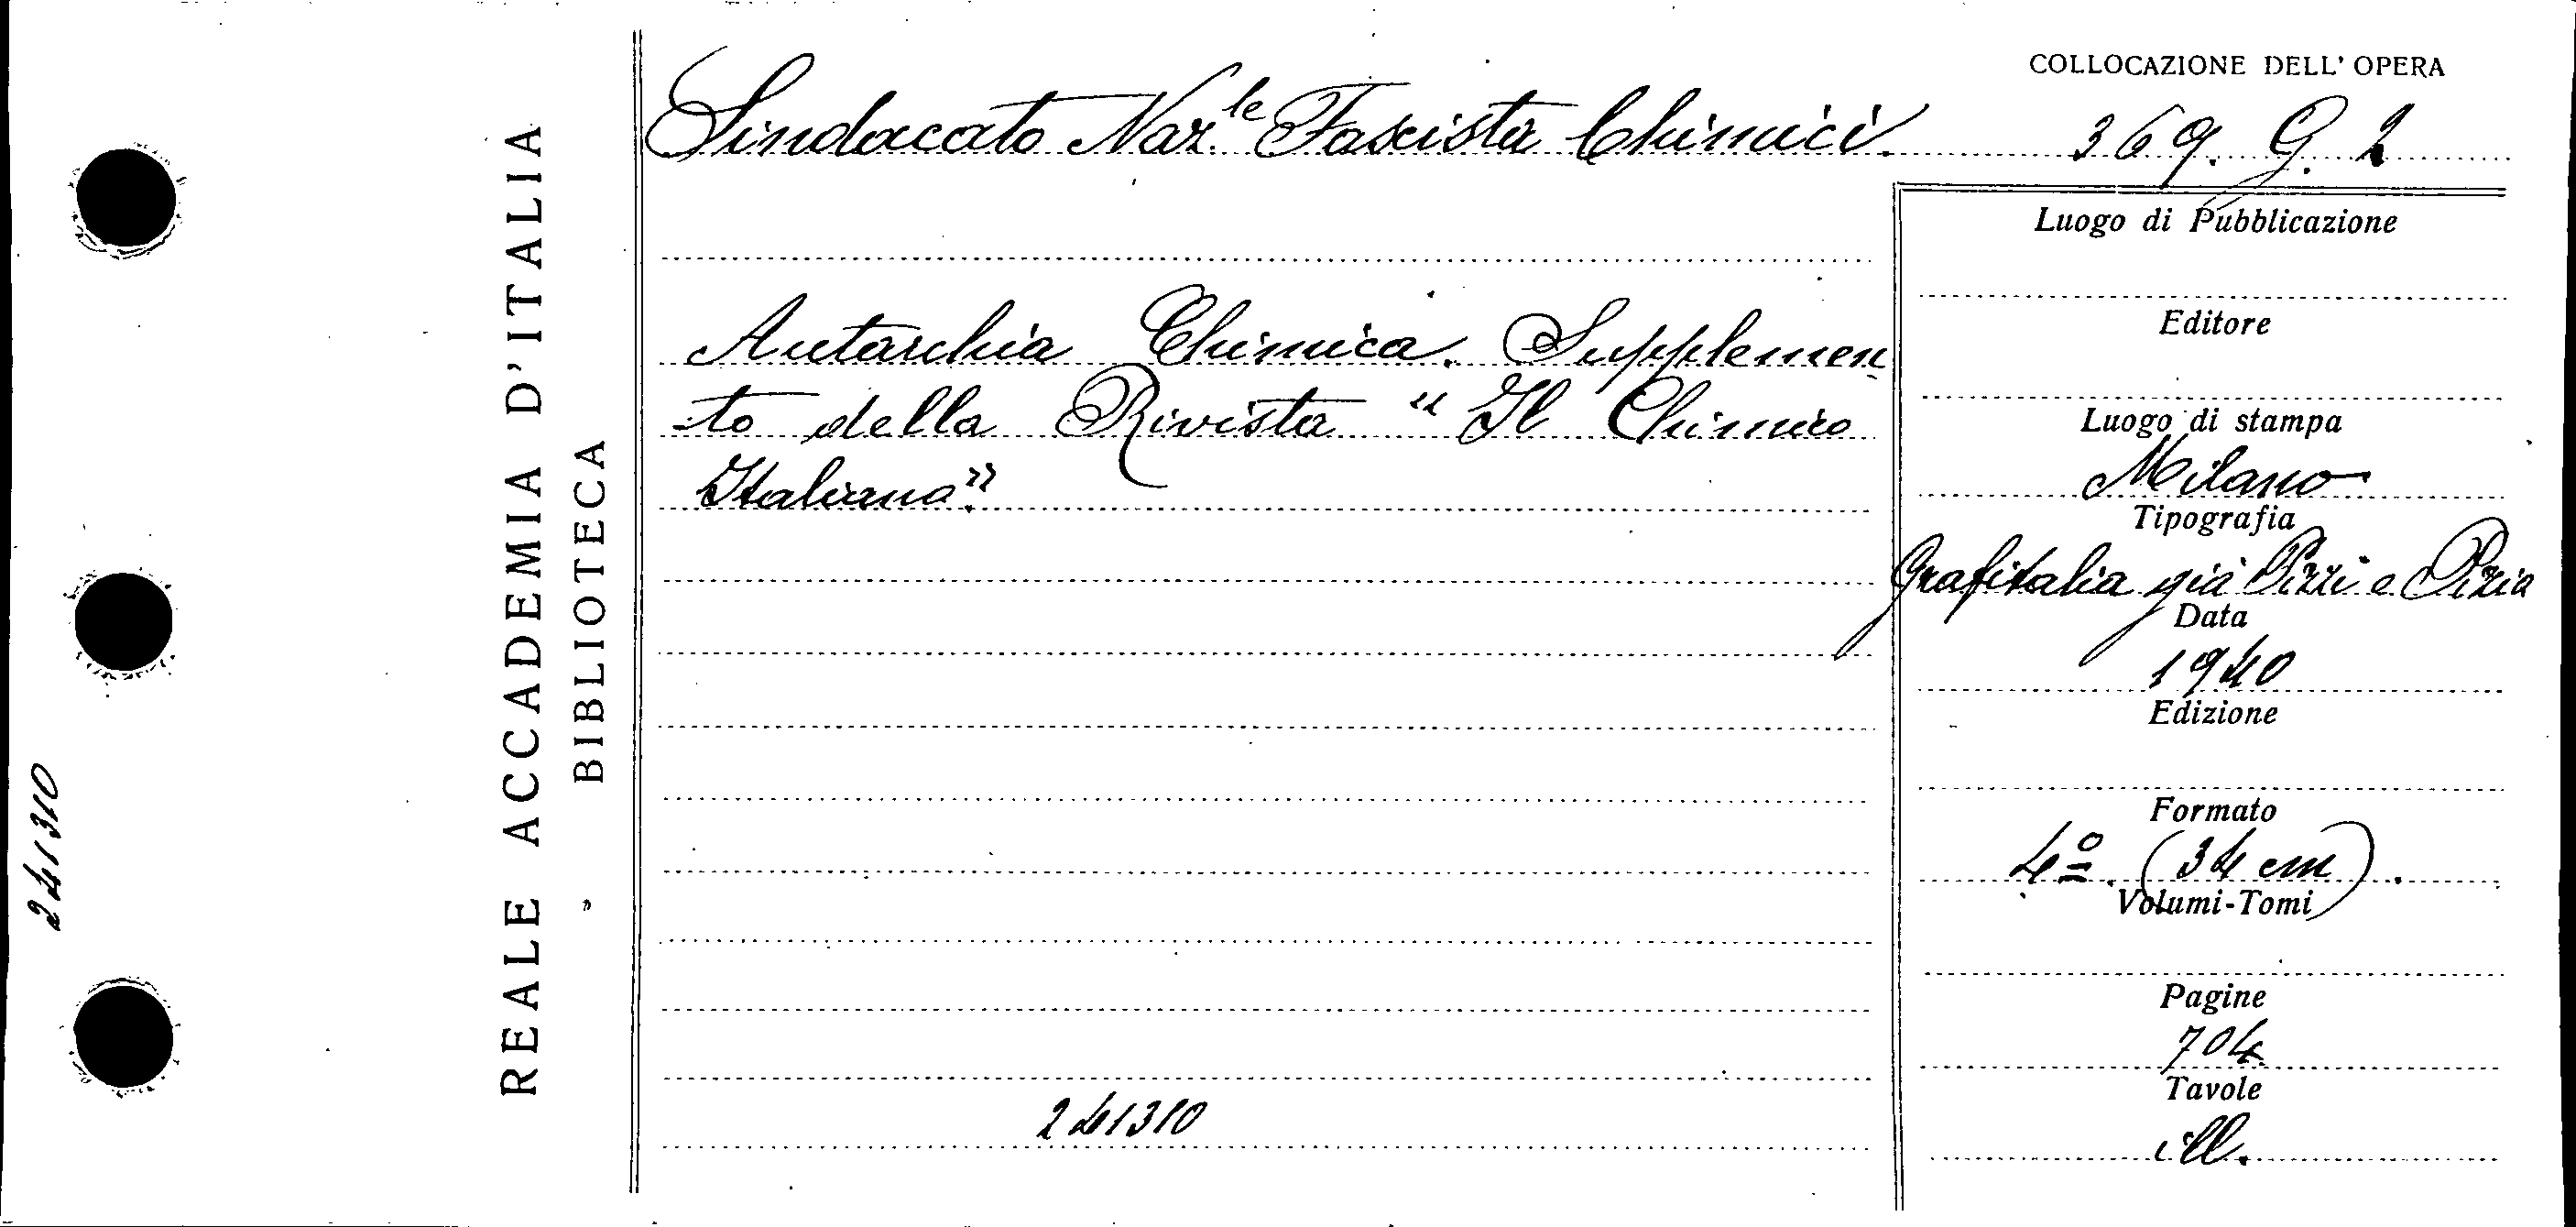 REALE ACCADEMIA D'ITALIA
BIBLIOTECA
241310
Sindacato Naz.le Fascista Chimici.
Autarchia Chimica. Supplemen
to della Rivista "Il Chimico
Italiano".
241310
COLLOCAZIONE DELL'OPERA
369. G. 2
Luogo di Pubblicazione
Editore
Luogo di stampa
Milano
Tipografia
Grafitalia già Pizzi e Pizio
Data
1940
Edizione
Formato
4º. (34 cm).
Volumi-Tomi
Pagine
704
Tavole
ill.